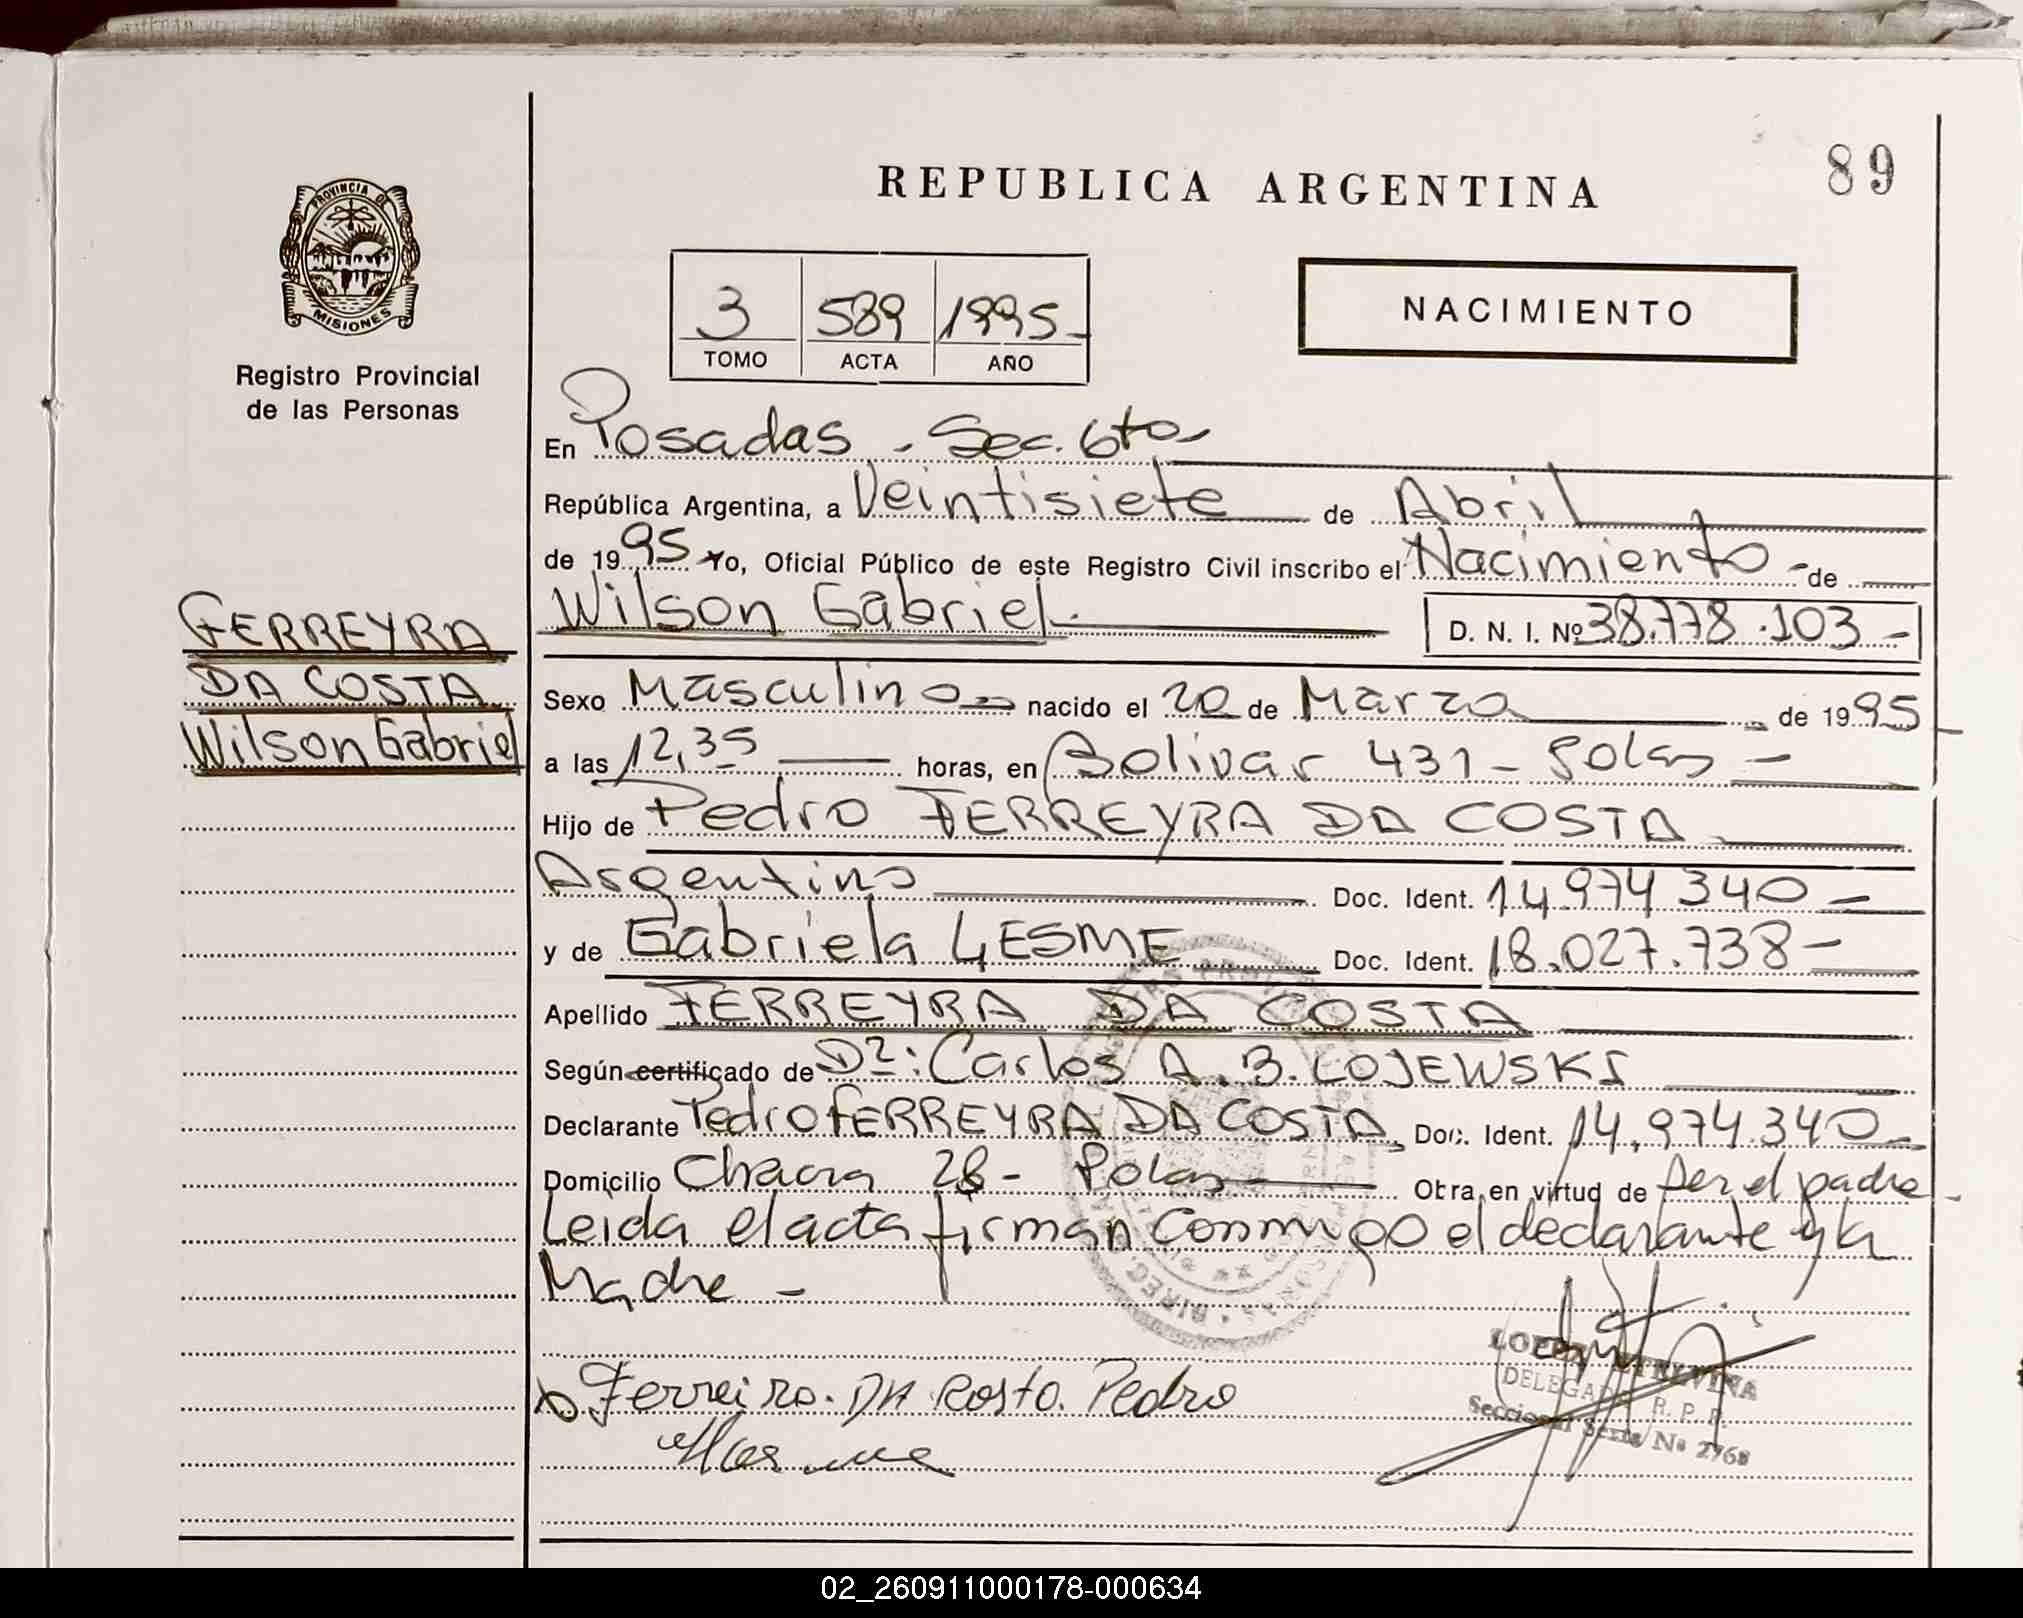 89
REPUBLICA ARGENTINA
PROVINCIA DE
MISIONES
Registro Provincial
de las Personas
3 589 1995
TOMO ACTA AÑO
NACIMIENTO
En Posadas - Sec. 6ta
República Argentina, a Veintisiete de Abril
de 1995 Yo, Oficial Público de este Registro Civil inscribo el Nacimiento de
Wilson Gabriel D. N. I. Nº 38.778.103
FERREYRA
DA COSTA
Wilson Gabriel
Sexo Masculino nacido el 20 de Marzo de 1995
a las 12,35 horas, en Bolivar 431 - Pdas
Hijo de Pedro FERREYRA DA COSTA
Argentino Doc. Ident. 14.974.340
y de Gabriela LESME Doc. Ident. 18.027.738
Apellido FERREYRA DA COSTA
Según certificado de Dr: Carlos A. B. LOJEWSKI
Declarante Pedro FERREYRA DA COSTA Doc. Ident. 14.974.340
Domicilio Chacra 28 - Pdas Obra en virtud de ser el padre
Leida el acta firman conmigo el declarante y la
Madre -
Ferreiro. DA Kosto. Pedro
DELEGADA R. P. P.
Seccional Sexta Nº 2768
02_260911000178-000634